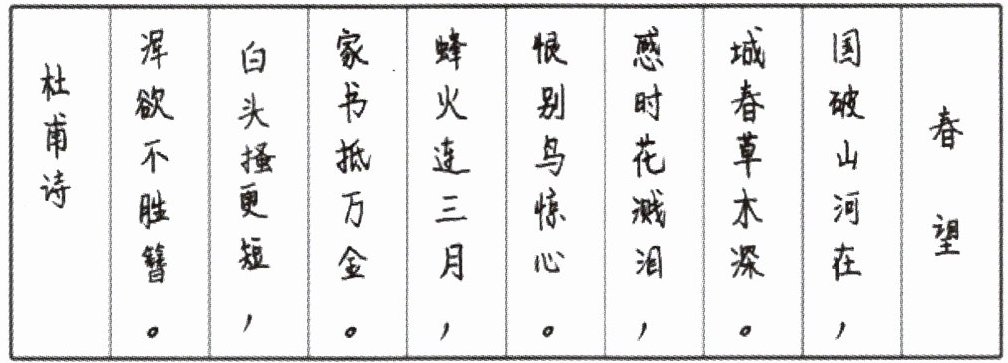 春望
国破山河在，
城春草木深。
感时花溅泪，
恨别鸟惊心。
蜂火连三月，
家书抵万金。
白头搔更短，
浑欲不胜簪。
杜甫诗